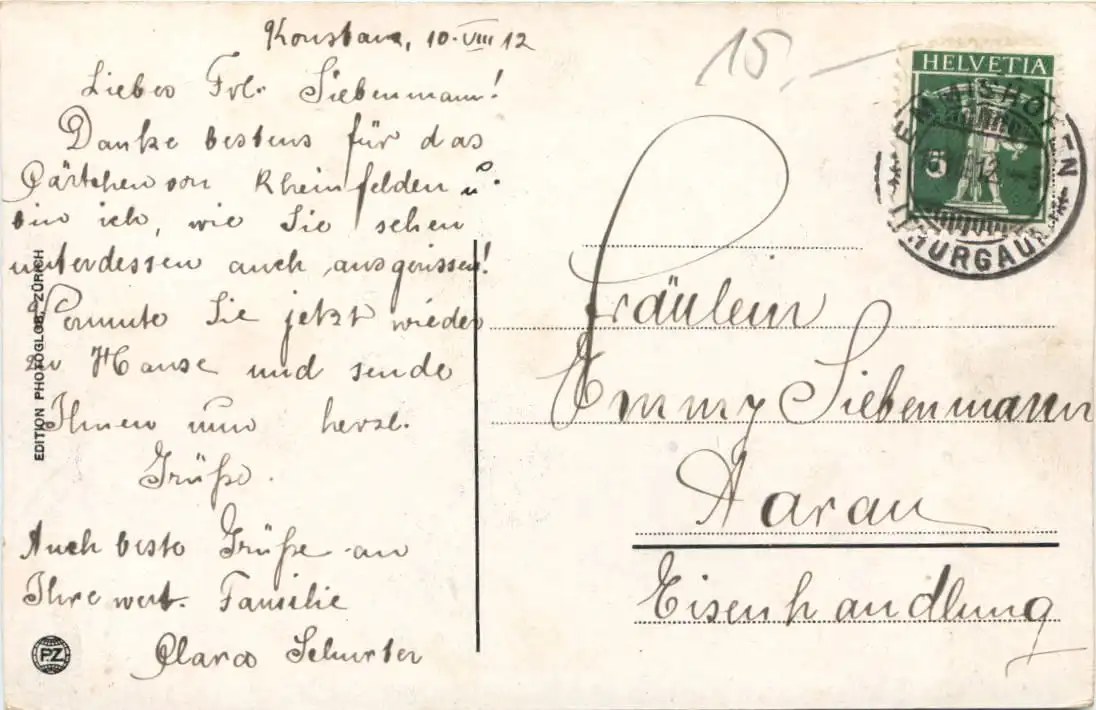 Konstanz, 10.VIII 12
Liebes Frl. Siebenmann!
Danke bestens für das
Kärtchen von Rheinfelden u.
bin ich, wie Sie sehen
unterdessen auch ausgerissen!
Vermute Sie jetzt wieder
zu Hause und sende
Ihnen nun herzl.
Grüße.
Auch beste Grüße an
Ihre wert. Familie
Clara Schurter
EDITION PHOTOGLOB, ZÜRICH
PZ
15.-
HELVETIA
5
EMMISHOFEN
(THURGAU)
Fräulein
Emmy Siebenmann
Aarau
Eisenhandlung